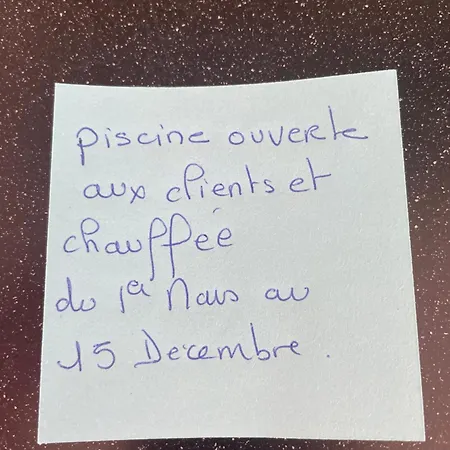 piscine ouverte
aux clients et
chauffée
du 1er Mars au
15 Decembre.